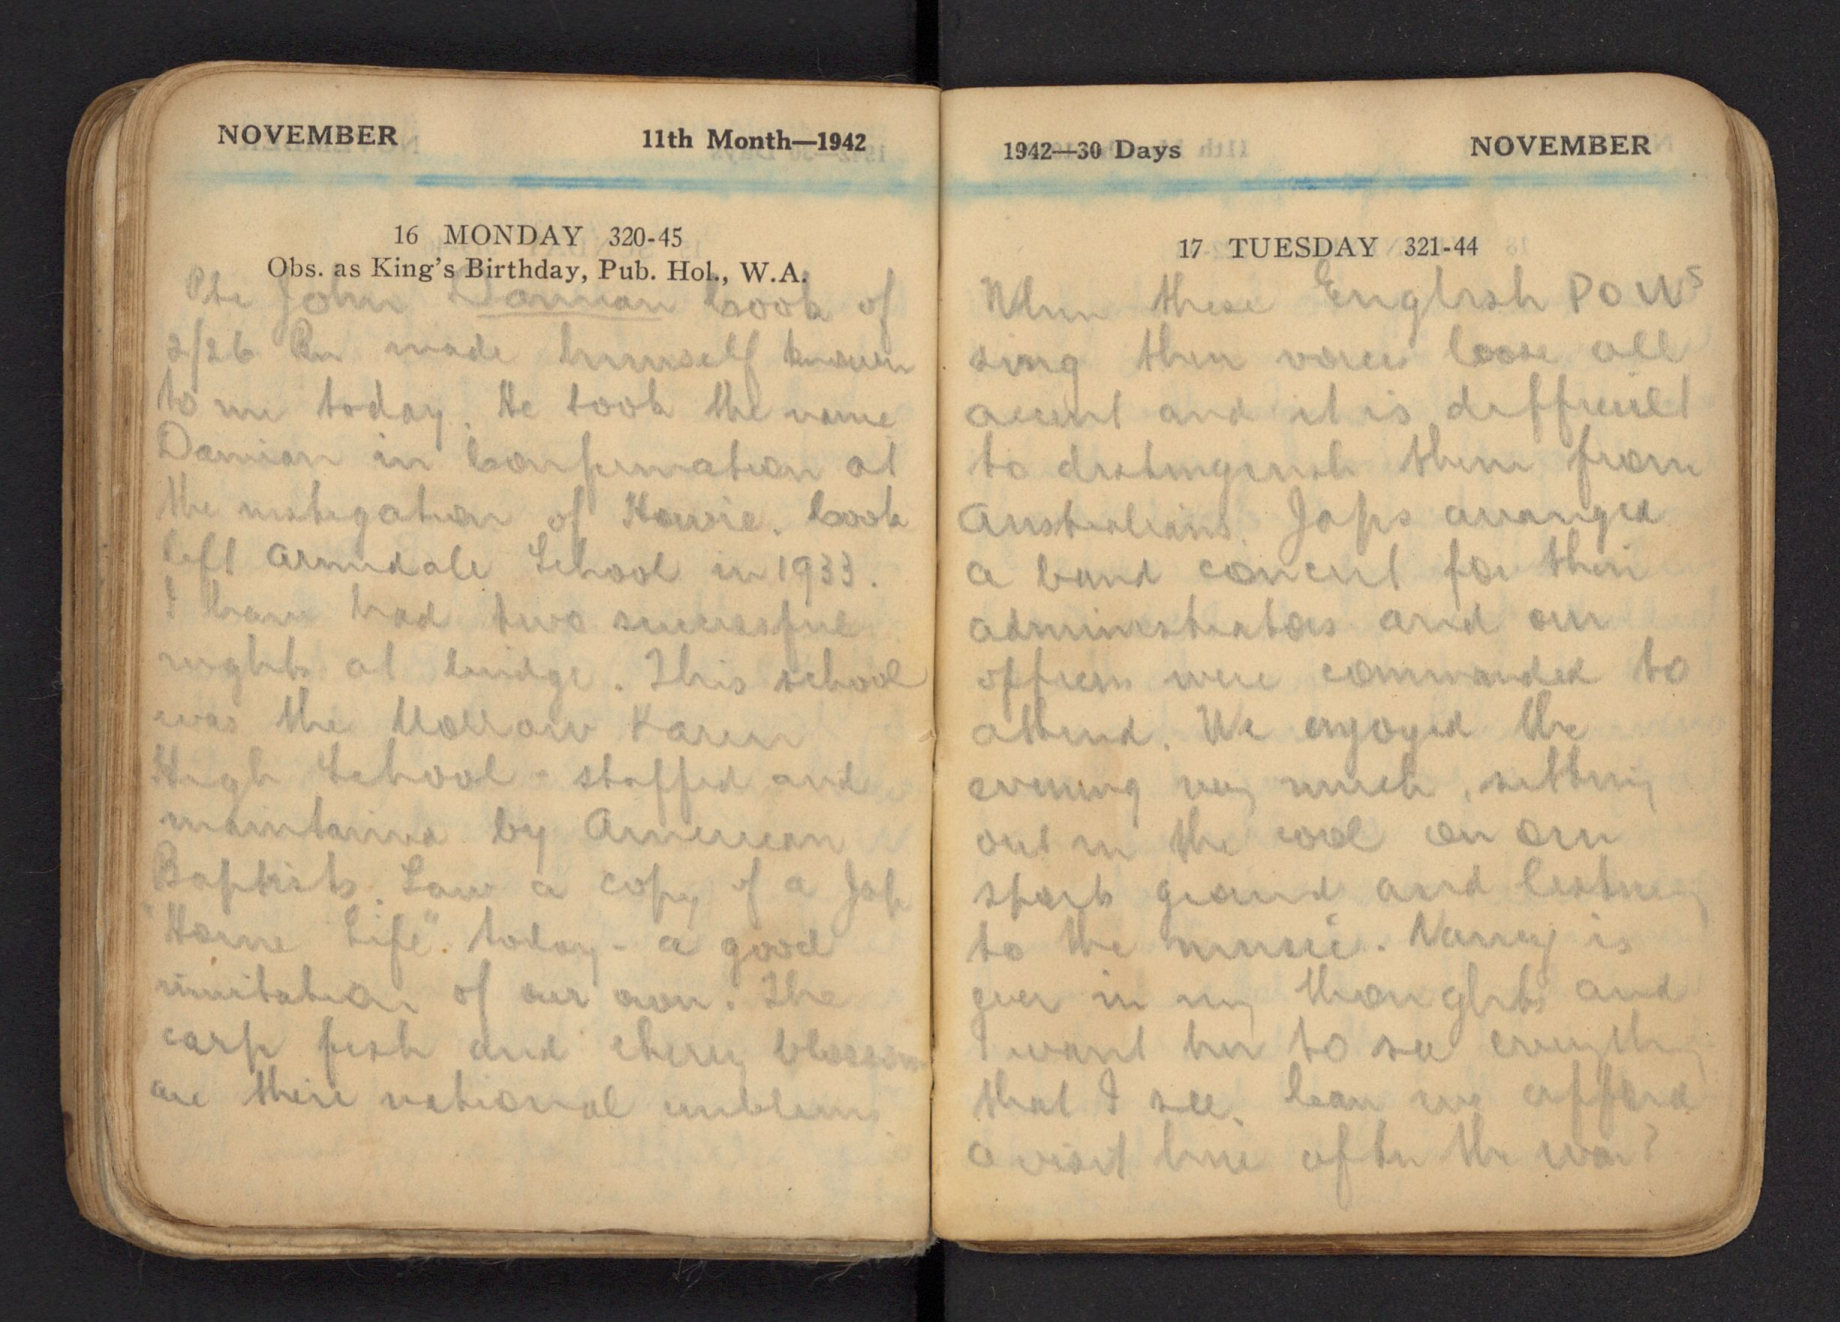 NOVEMBER 11th Month—1942
16 MONDAY 320-45
Obs. as King's Birthday, Pub. Hol., W.A.
Pte John Damian Cook of
2/26 Bn made himself known
to me today. He took the name
Damian in Confirmation at
the instigation of Howie. Cook
left Armidale School in 1933.
I have had two successful
nights at bridge. This school
was the Karen
High School - staffed and
maintained by American
Baptists. Saw a copy of a Jap
"Home Life" today - a good
imitation of our own. The
carp fish and cherry blossom
are their national emblems.
1942—30 Days NOVEMBER
17 TUESDAY 321-44
When these English POWs
sing their voices loose all
accent and it is difficult
to distinguish them from
Australians. Japs arranged
a band concert for their
administrators and our
officers were commanded to
attend. We enjoyed the
evening very much, sitting
out in the cool on our
sports ground and listning
to the music. Nancy is
ever in my thoughts and
I want her to see everything
that I see. Can we afford
a visit here after the war?